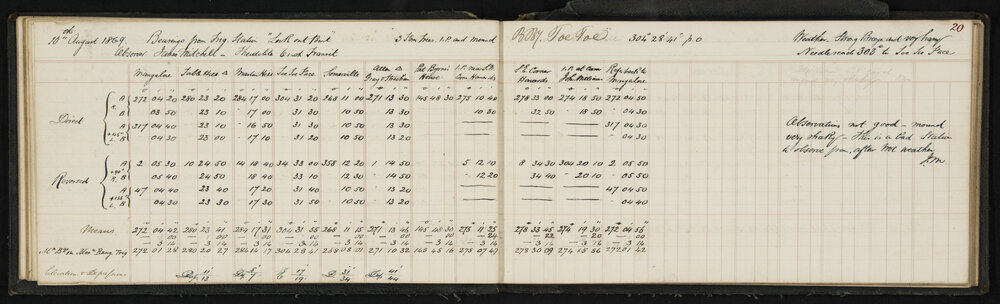 20
10th August 1869 Bearings from Trig. Station "Look out Point" 3 Iron Trees I.P. and Mound BBy. Toe Toe 304 28 41 p.o Weather Strong Breeze and very hazy
Observer John Mitchell - Theodolite 6 inch Transit Needle reads 303° to Toe Toe Face
Mangalore Table Hill Δ Martin Hill Toe Toe Face Somerville Allen Δ House I.P. near S.E. Cor. Howards S.E. Corner Howards I.P. at corn John Williams Refer back to Mangalore
Direct
A 272 04 20 280 23 20 284 17 00 304 31 20 268 11 00 271 13 30 145 48 30 275 10 40 278 33 00 274 18 50 272 04 50
B 03 50 23 10 17 00 31 30 10 50 13 30 10 30 32 50 18 50 04 30
A 217 04 40 23 10 16 50 31 30 10 50 13 20 317 04 30
B 04 30 23 00 17 10 31 20 10 50 13 20 04 30
Observations not good - mound very shaky - This is a bad Station to observe from, after wet weather
J.M.
Reversed
A 2 05 30 10 24 50 14 18 40 34 33 00 358 12 20 1 14 50 5 12 10 8 34 30 304 20 10 2 05 50
B 05 40 24 50 18 40 33 10 12 30 14 50 12 20 34 40 20 10 05 50
A 47 04 40 23 40 17 20 31 40 10 50 13 20 47 04 50
B 04 30 23 30 17 30 31 50 10 50 13 20 04 40
Means 272 04 42 280 23 41 284 17 31 304 31 55 268 11 15 271 13 46 145 48 30 275 11 25 278 33 45 274 19 30 272 04 56
3 14 3 14 3 14 3 14 3 14 3 14 3 14 3 14 3 14 3 14 3 14
272 01 28 284 14 17 304 28 41 268 08 01 271 10 32 145 45 16 275 07 47 278 30 09 274 15 56 272 01 42
Elevation & Depression 11/13 5/7 E 17/19 D 31/34 41/44